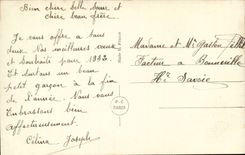 Bien chère belle Sœur et
chère beau frère
Je vous offre a tous
deux Nos meilleures vœux
et Souhaits pour 1932.
Et surtous un beau
petit garçon à la fin
de l'année. Nous vous
Embrassons bien
affectueusement.
Céline Joseph
Madame et Mr Gaston
Facteur a Bonneville
Hte Savoie
P-C
PARIS